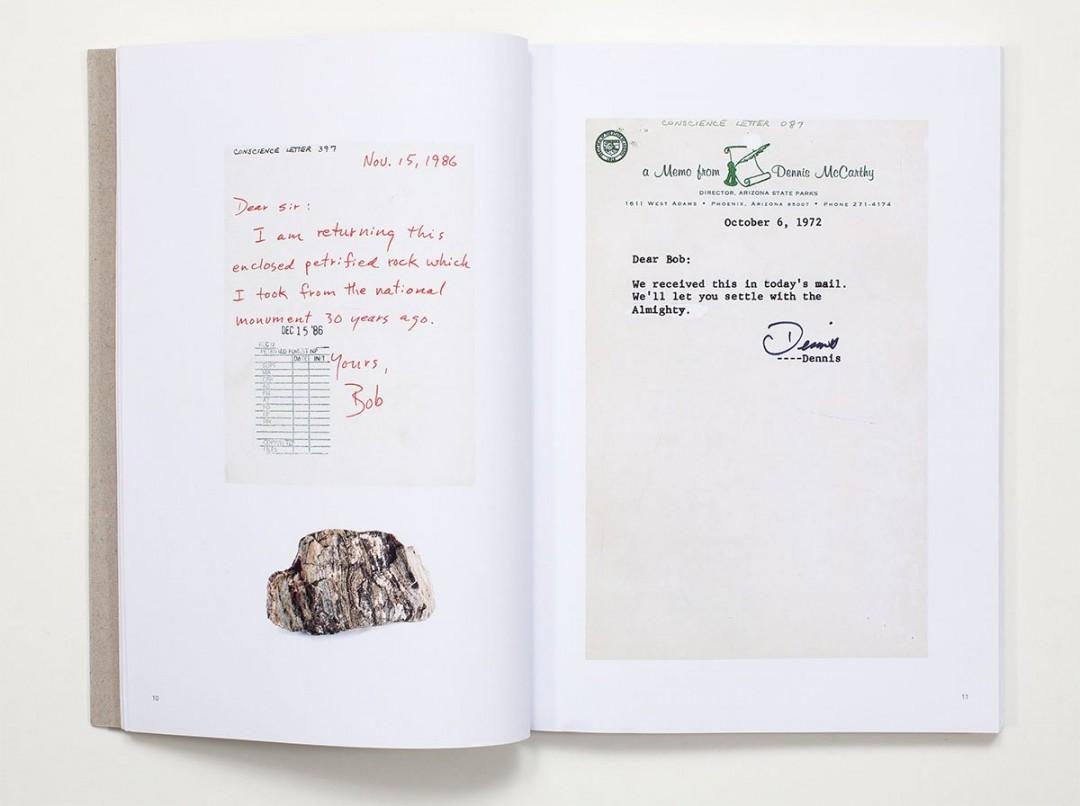 CONSCIENCE LETTER 397
Nov. 15, 1986
Dear Sir:
I am returning this
enclosed petrified rock which
I took from the national
monument 30 years ago.
DEC 15 '86
DATE INIT
Yours,
Bob
10
CONSCIENCE LETTER 087
a Memo from Dennis McCarthy
DIRECTOR, ARIZONA STATE PARKS
1611 WEST ADAMS • PHOENIX, ARIZONA 85007 • PHONE 271-4174
October 6, 1972
Dear Bob:
We received this in today's mail.
We'll let you settle with the
Almighty.
Dennis
----Dennis
11